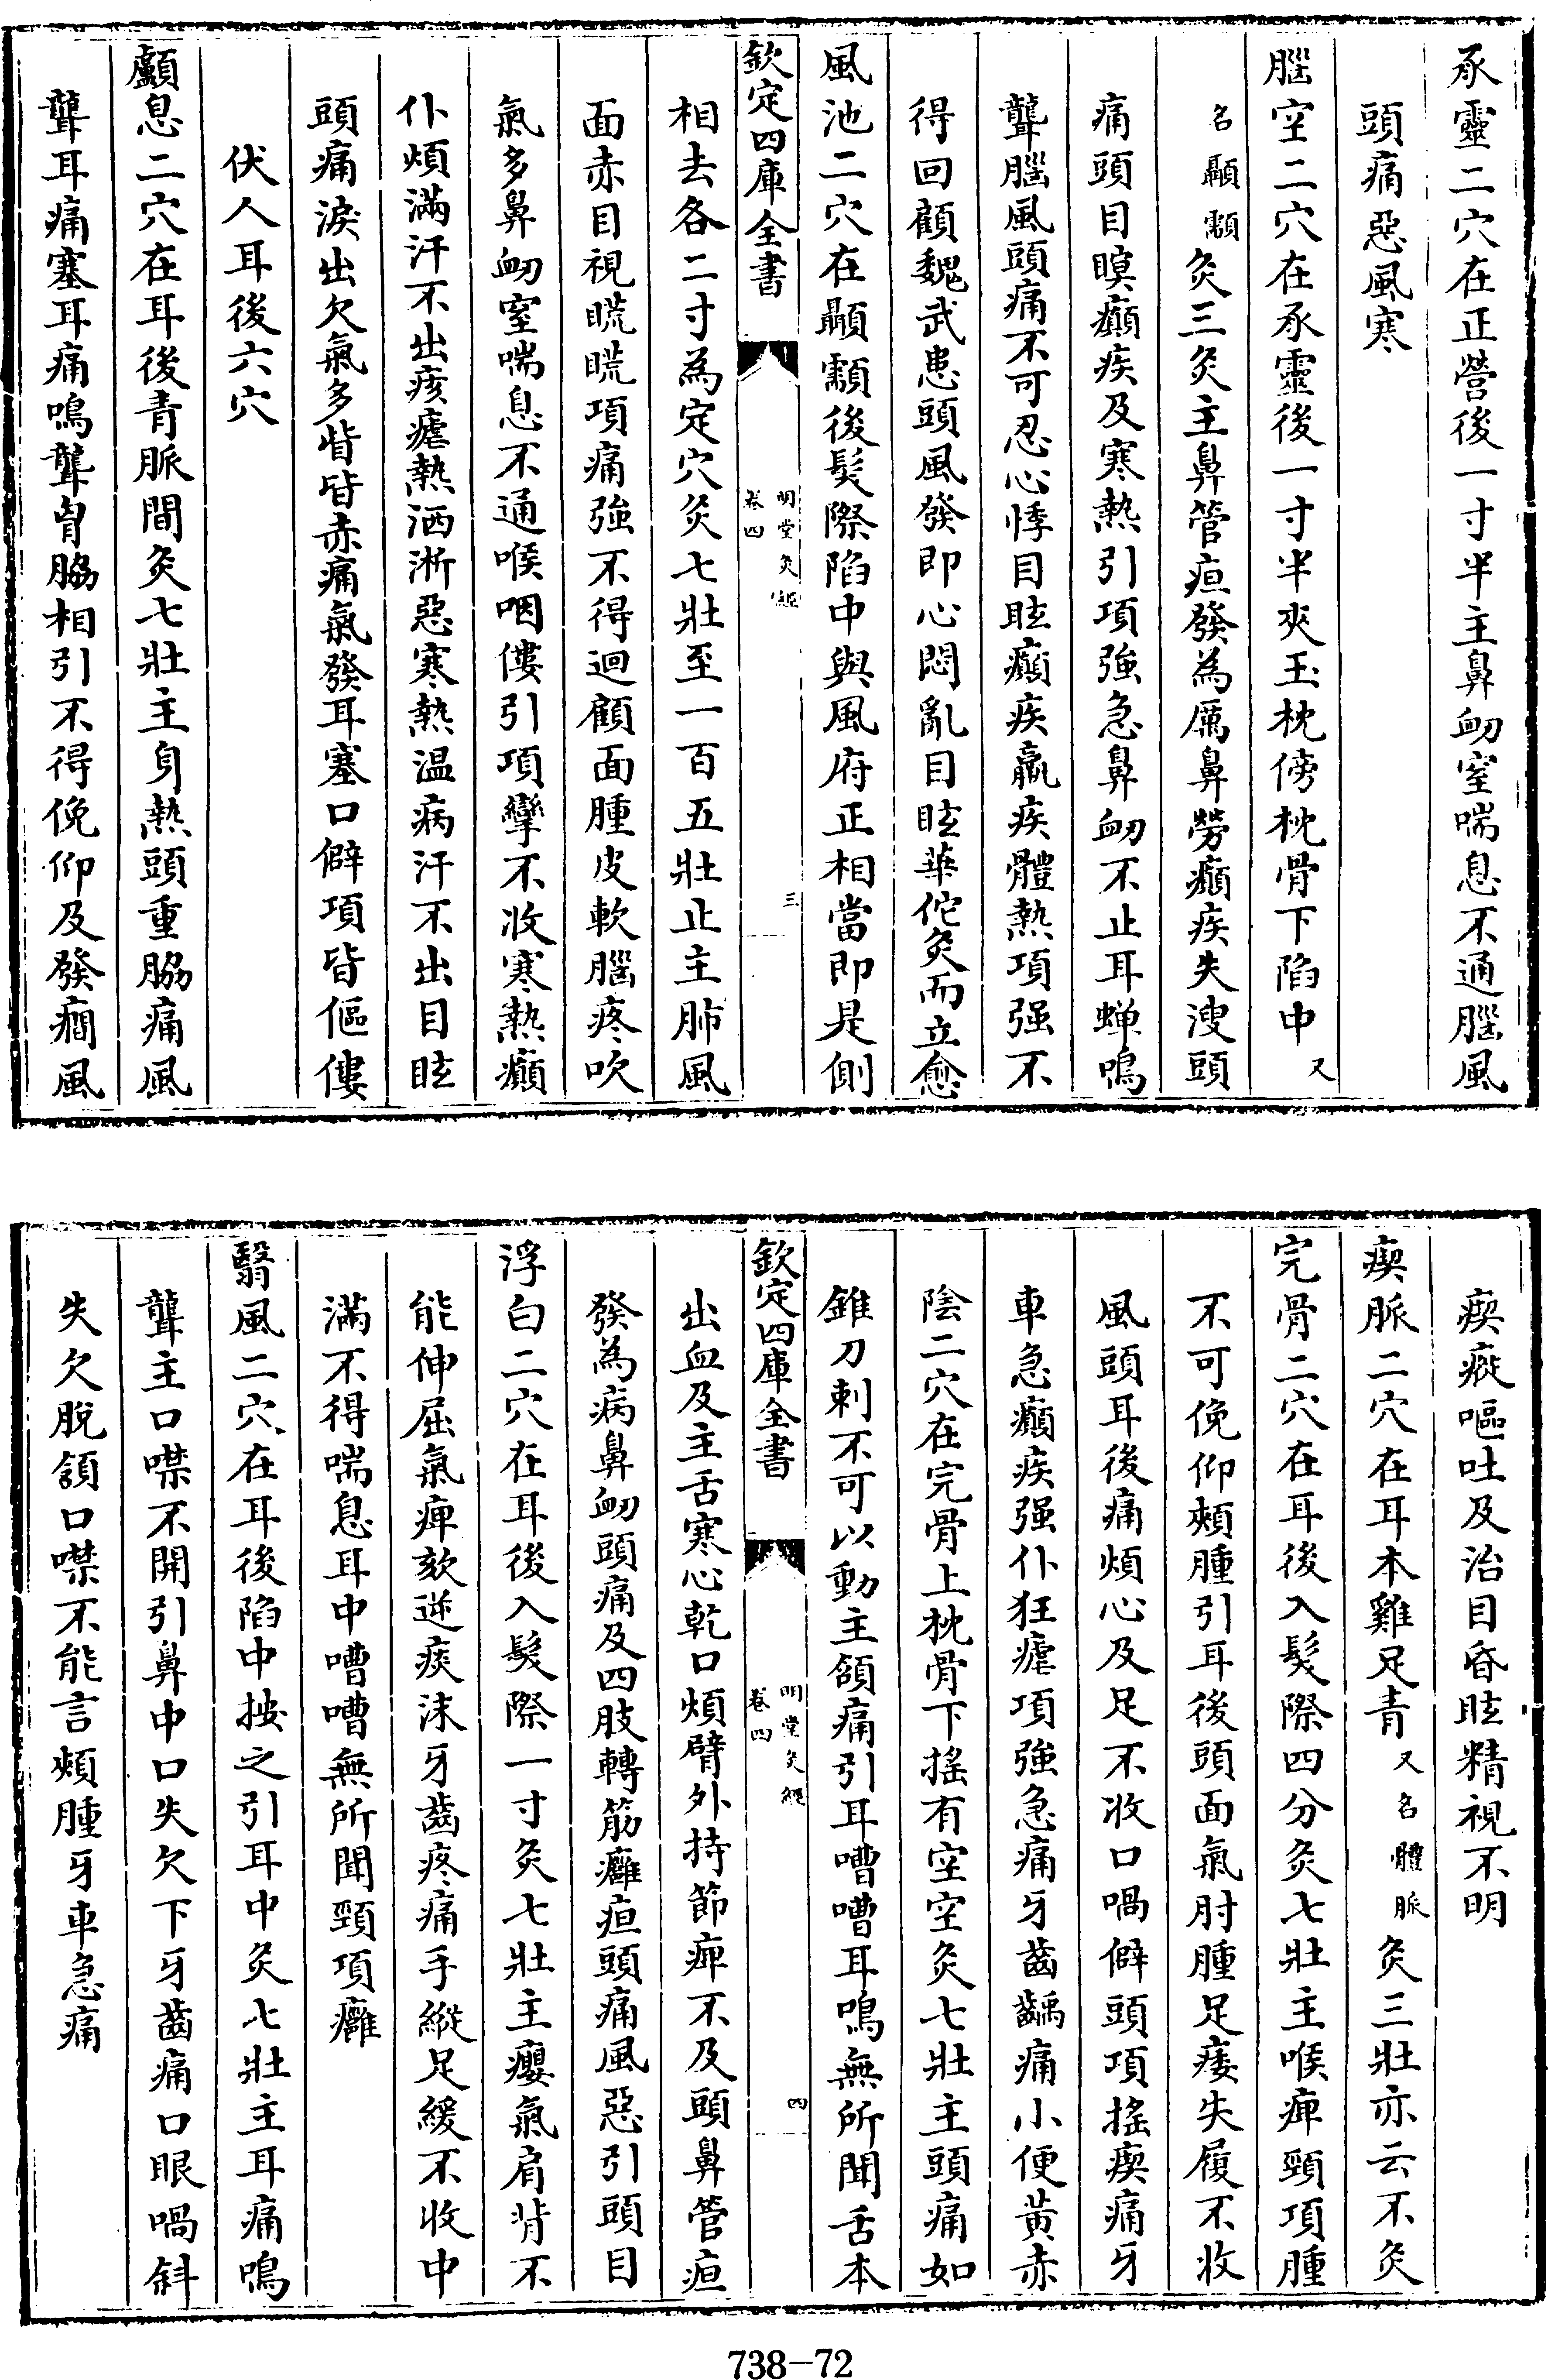 承靈二穴在正營後一寸半主鼻衂窒喘息不通腦風
頭痛惡風寒
腦空二穴在承靈後一寸半夾玉枕傍枕骨下陷中又
名顳顬灸三灸主鼻管疽發為厲鼻勞癲疾失溲頭
痛頭目瞑癲疾及寒熱引項強急鼻衂不止耳蟬鳴
聾腦風頭痛不可忍心悸目眩癲疾羸疾體熱項强不
得回顧魏武患頭風發即心悶亂目眩華佗灸而立愈
風池二穴在顳顬後髮際陷中與風府正相當即是側
欽定四庫全書
明堂灸經
卷四
三
相去各二寸為定穴灸七壯至一百五壯止主肺風
面赤目視䀮䀮項痛強不得迴顧面腫皮軟腦疼吹
氣多鼻衂窒喘息不通喉咽僂引項攣不收寒熱癲
仆煩滿汗不出痎瘧熱洒淅惡寒熱温病汗不出目眩
頭痛淚出欠氣多眥眥赤痛氣發耳塞口僻項背傴僂
伏人耳後六穴
顱息二穴在耳後青脈間灸七壯主身熱頭重脇痛風
聾耳痛塞耳痛鳴聾胷脇相引不得俛仰及發癇風
瘈瘲嘔吐及治目昏眩精視不明
瘈脈二穴在耳本雞足青又名體脈灸三壯亦云不灸
完骨二穴在耳後入髮際四分灸七壯主喉痺頸項腫
不可俛仰頰腫引耳後頭面氣胕腫足痿失履不收
風頭耳後痛煩心及足不收口喎僻頭項搖瘈痛牙
車急癲疾强仆狂瘧項強急痛牙齒齲痛小便黄赤
陰二穴在完骨上枕骨下搖有空空灸七壯主頭痛如
錐刀刺不可以動主頷痛引耳嘈嘈耳鳴無所聞舌本
欽定四庫全書
明堂灸經
卷四
四
出血及主舌寒心乾口煩臂外持節痺不及頭鼻管疽
發為病鼻衂頭痛及四肢轉筋癰疽頭痛風惡引頭目
浮白二穴在耳後入髮際一寸灸七壯主癭氣肩背不
能伸屈氣痺欬逆痰沫牙齒疼痛手縱足緩不收中
滿不得喘息耳中嘈嘈無所聞頸項癰
翳風二穴在耳後陷中按之引耳中灸七壯主耳痛鳴
聾主口噤不開引鼻中口失欠下牙齒痛口眼喎斜
失欠脫頷口噤不能言頰腫牙車急痛
738-72